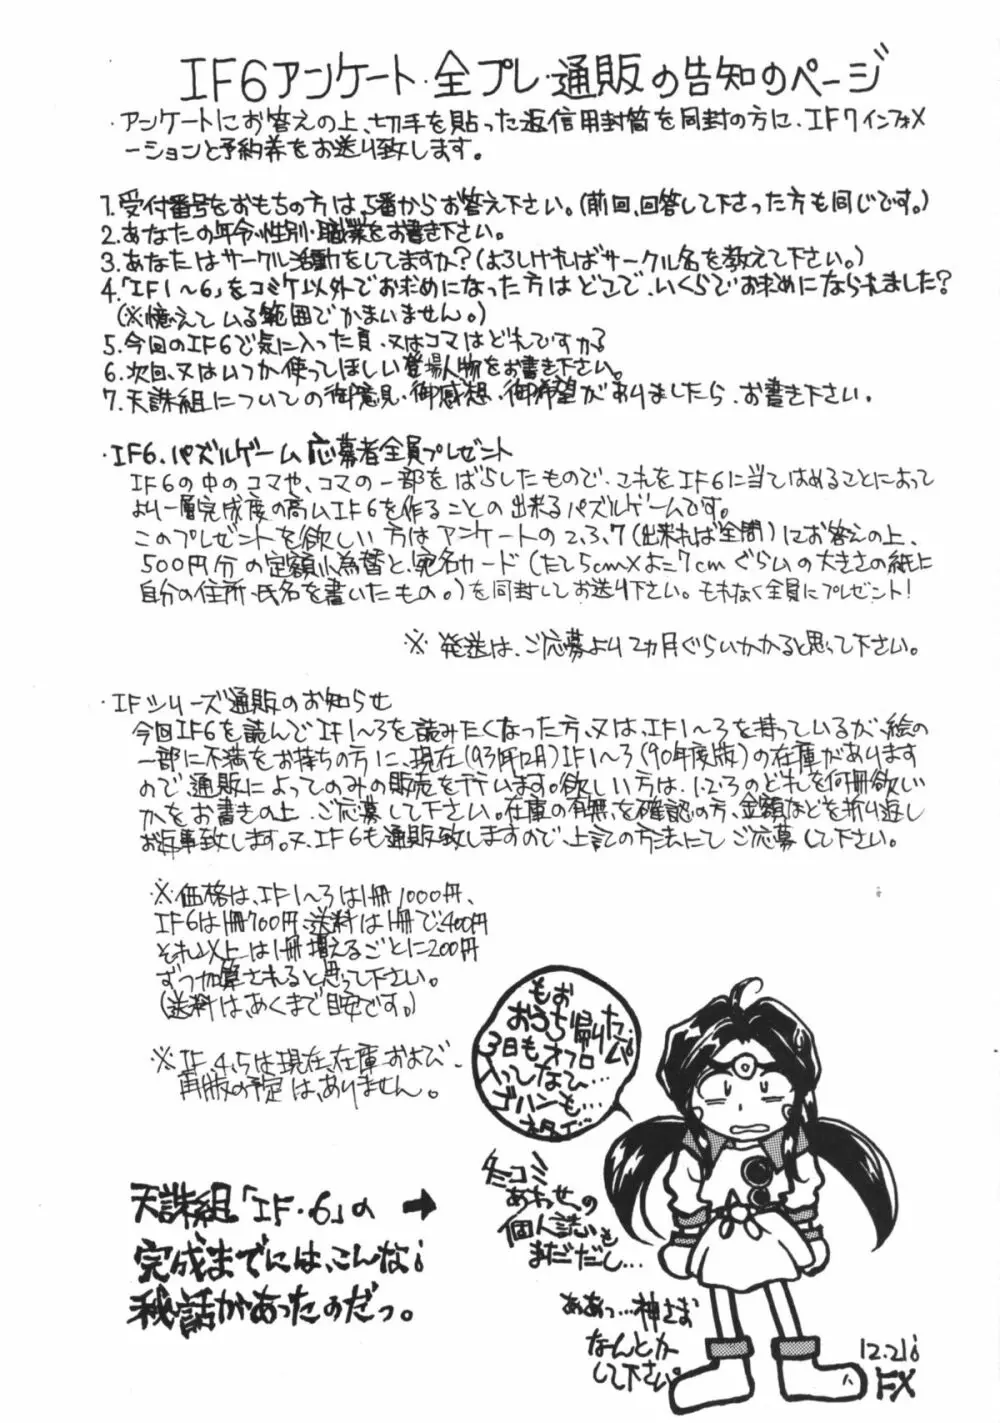 IF6アンケート・全プレ・通販の告知のページ
・アンケートにお答えの上、切手を貼った返信用封筒を同封の方に、IF7インフォメ
ーションと予約券をお送り致します。
1.受付番号をおもちの方は、5番からお答え下さい。(前回、回答して下さった方も同じです。)
2.あなたの年令・性別・職業をお書き下さい。
3.あなたはサークル活動をしてますか?(よろしければサークル名を教えて下さい。)
4.「IF1~6」をコミケ以外でお求めになった方はどこで、いくらでお求めになられました?
(※憶えている範囲でかまいません。)
5.今回のIF6で気に入った頁、又はコマはどれですか?
6.次回、又はいつか使ってほしい登場人物をお書き下さい。
7.天誅組についての御意見・御感想・御希望がありましたら、お書き下さい。
・IF6.パズルゲーム応募者全員プレゼント
IF6の中のコマや、コマの一部をばらしたもので、これをIF6に当てはめることによって
より一層完成度の高いIF6を作ることの出来るパズルゲームです。
このプレゼントを欲しい方はアンケートの2、3、7(出来れば全問)にお答えの上、
500円分の定額小為替と、宛名カード(たて5cm×よこ7cmぐらいの大きさの紙に
自分の住所、氏名を書いたもの。)を同封してお送り下さい。もれなく全員にプレゼント!
※発送は、ご応募より2ヵ月ぐらいかかると思って下さい。
・IFシリーズ通販のお知らせ
今回IF6を読んでIF1~3を読みたくなった方、又は、IF1~3を持っているが、絵の
一部に不満をお持ちの方に、現在(93年12月)IF1~3(90年度版)の在庫があります
ので通販によってのみの販売を行います。欲しい方は、1.2.3のどれを何冊欲しい
かをお書きの上、ご応募して下さい。在庫の有無を確認の方、金額などを折り返し
お返事致します。又、IF6も通販致しますので、上記の方法にてご応募して下さい。
※価格は、IF1~3は1冊1000円、
IF6は1冊700円、送料は1冊で、400円
それ以上は1冊増えるごとに200円
ずつ加算されると思って下さい。
(送料は、あくまで目安です。)
※IF4、5は現在、在庫および、
再版の予定は、ありません。
もお
おうち帰りた…
3日もオフロ
入ってなひ…
ゴハンも…
冬コミ
あわせの
個人誌も
まだだし…
ああっ…神さま
なんとか
して下さい。
天誅組「IF・6」の →
完成までには、こんな!
秘話があったのだっ。
12.21!
FX